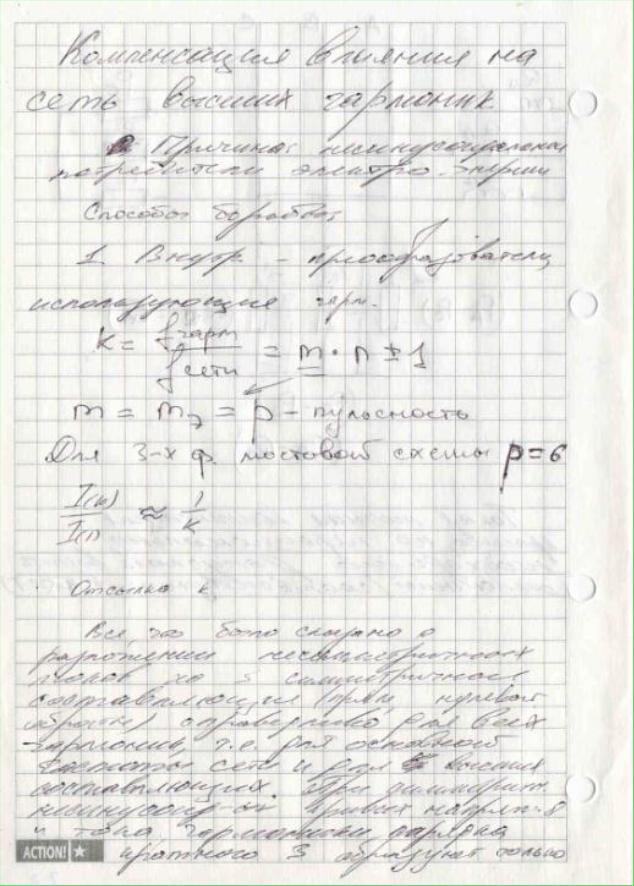 Компенсация влияния на
сеть высших гармоник
Причина: несинусоидальн
потребители электро-энергии
Способы борьбы:
1. Внутр. – преобразователи,
использующие гарм.
K = fгарм / fсети = m · n ± 1
m = mэ = p – пульсность
Для 3-х ф. мостовой схемы p=6
I(k) / I(1) ≈ 1 / K
Отсылка к
Все, что было сказано о
разложении несимметричных
токов на 3 симметричные
составляющие (прям, нулевой
обратн) справедливо для всех
гармоник, т.е. для основной
частоты сети и для высших
составляющих. При симметрич.
несинусоид-ых кривых напряж-я
и тока гармоники порядка
кратного 3 образуют только
ACTION!